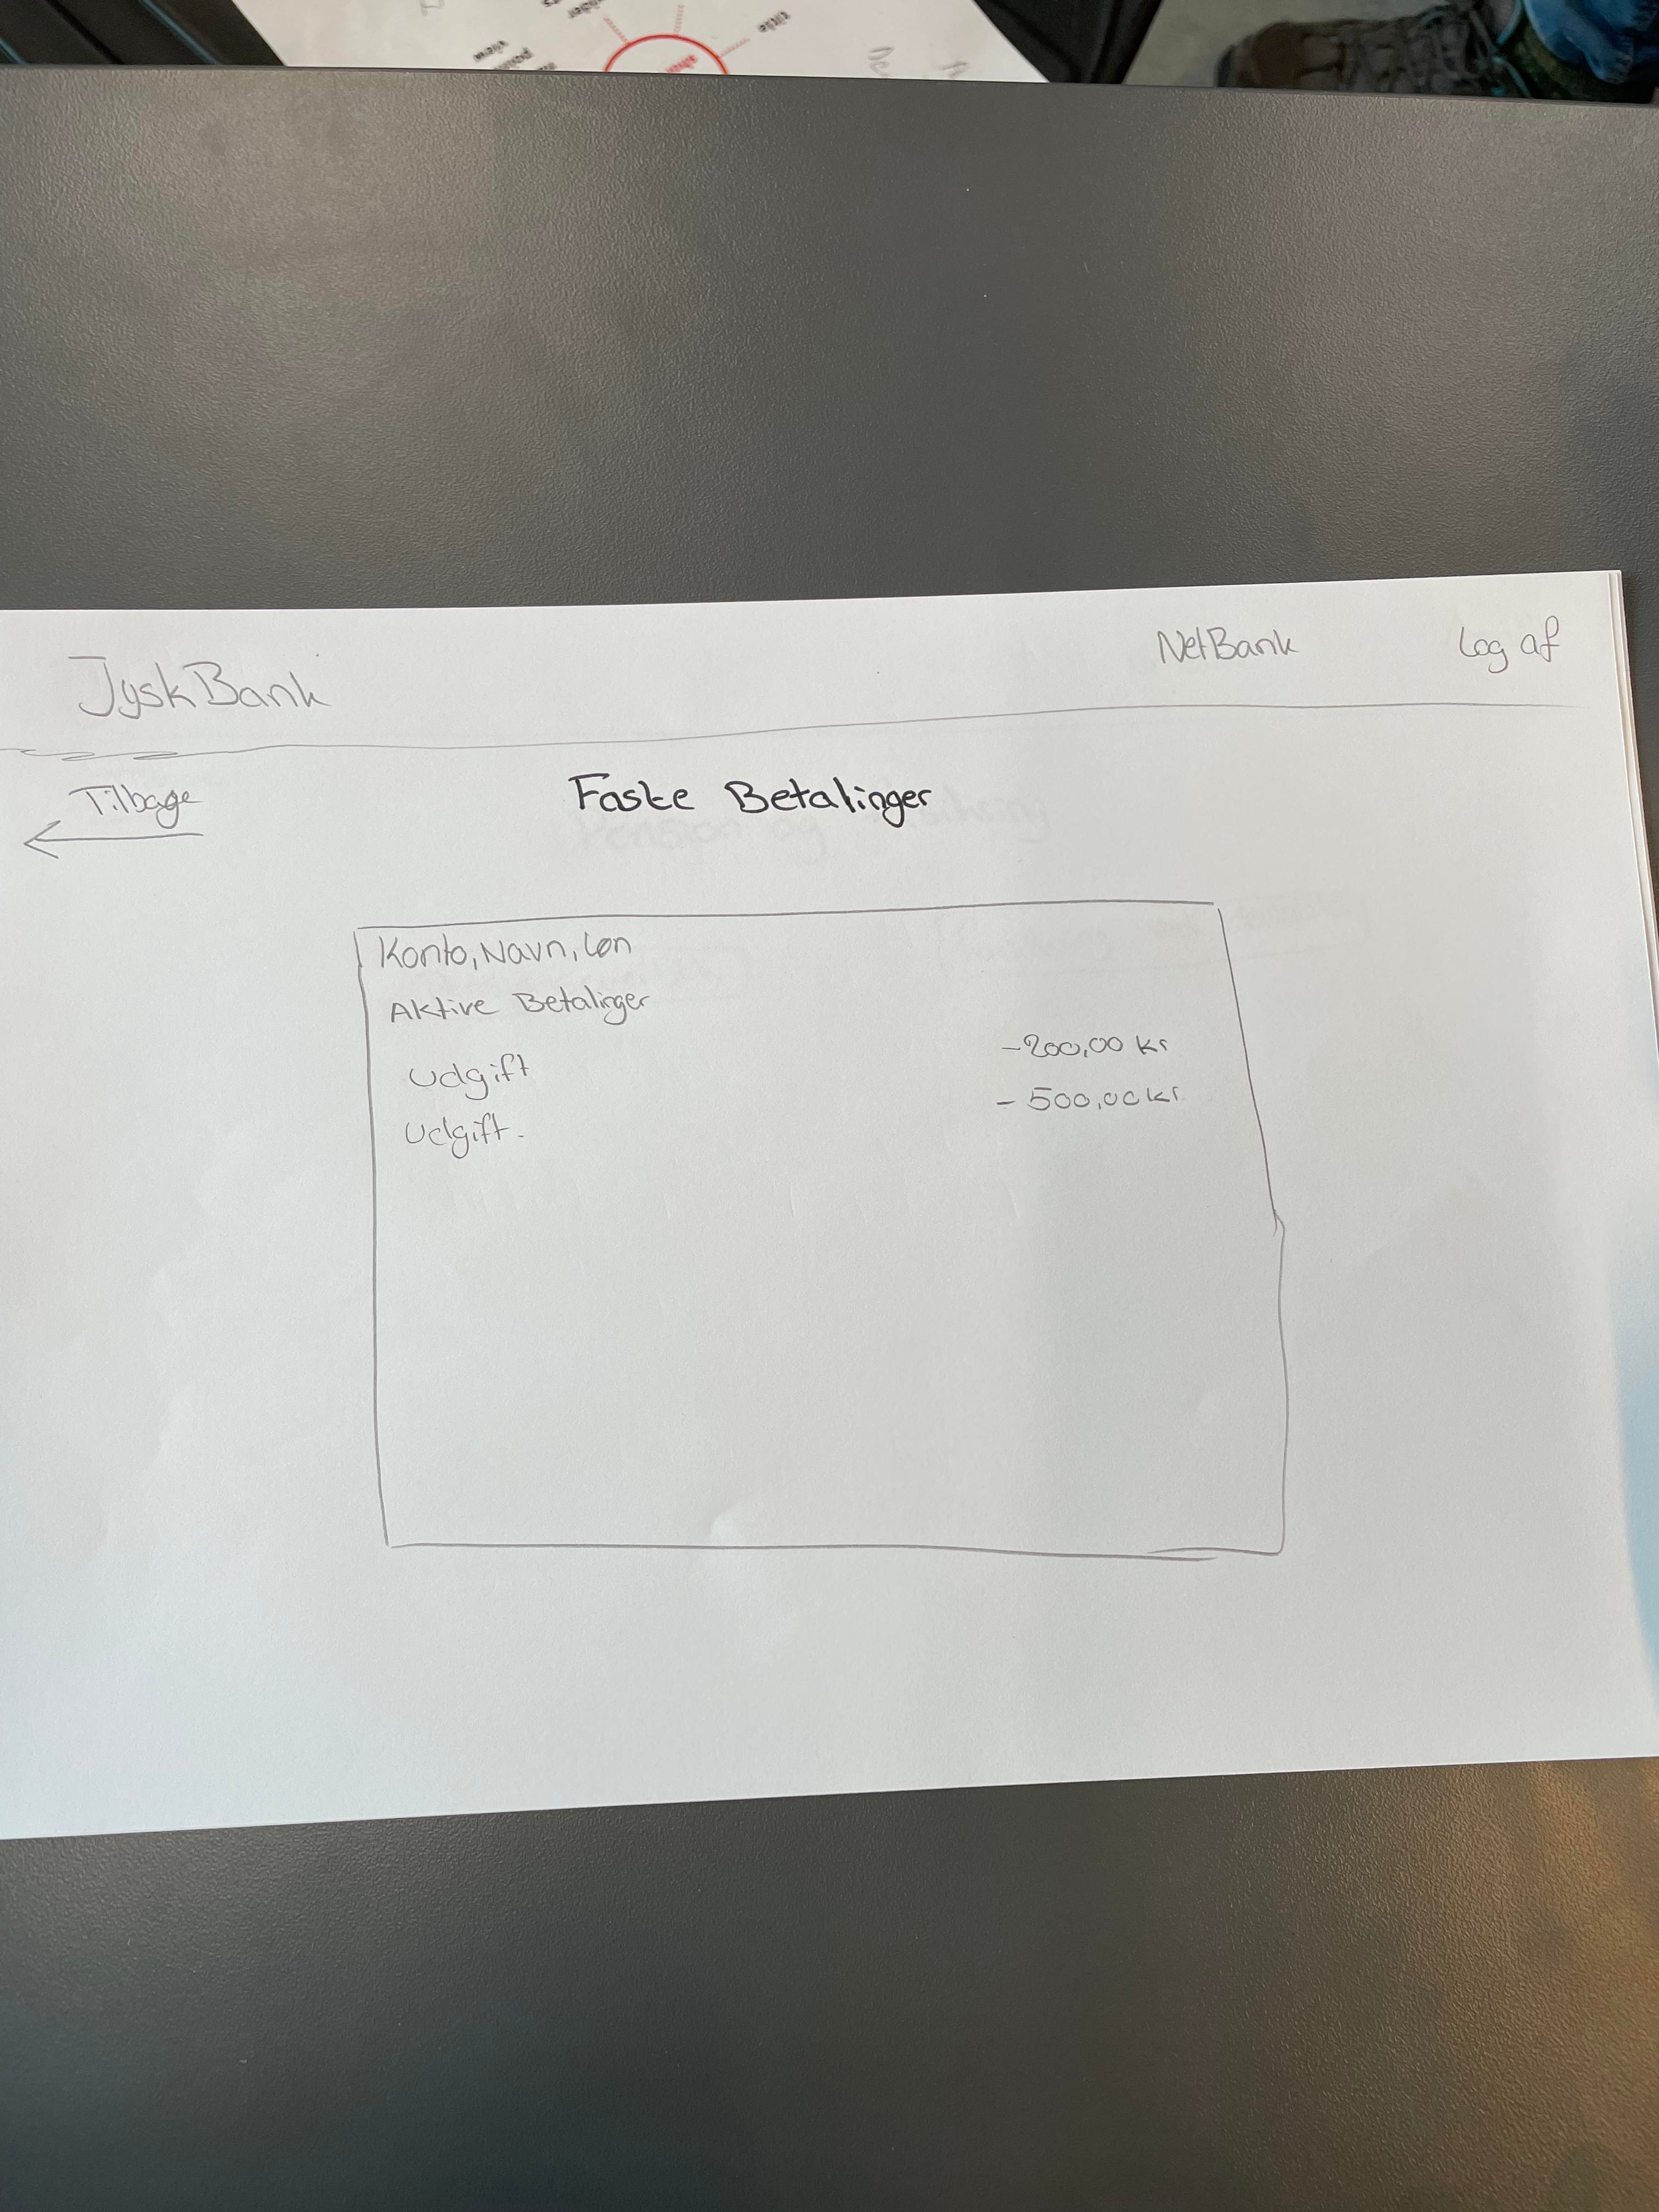 title
view
JyskBank
NetBank
Log af
Tilbage
Faste Betalinger
Konto, Navn, Løn
Aktive Betalinger
Udgift -200,00 kr
Udgift. - 500,00 kr.